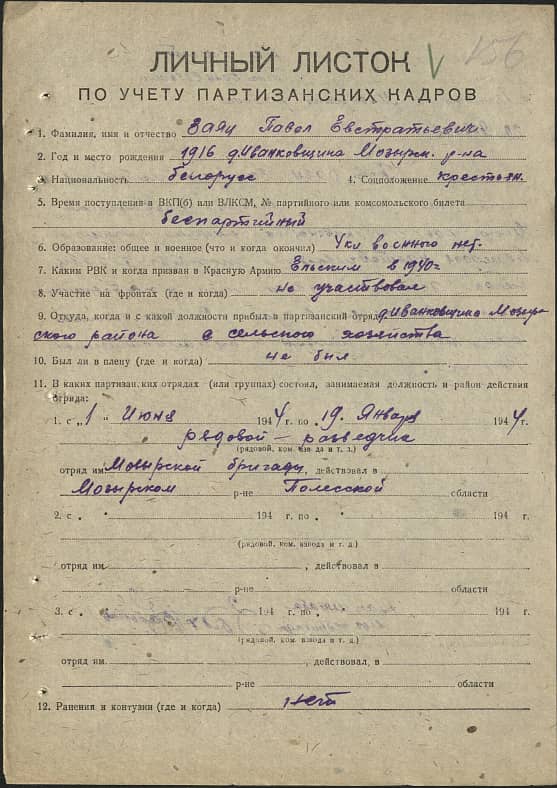 156
ЛИЧНЫЙ ЛИСТОК
ПО УЧЕТУ ПАРТИЗАНСКИХ КАДРОВ
1. Фамилия, имя и отчество Заяц Павел Евстратьевич
2. Год и место рождения 1916 д.Иванковщина Мозырск. р-на
3. Национальность белорусс 4. Соцположение крестьян.
5. Время поступления в ВКП(б) или ВЛКСМ, № партийного или комсомольского билета
беспартийный
6. Образование: общее и военное (что и когда окончил) 4кл военного нет.
7. Каким РВК и когда призван в Красную Армию Ельским в 1940г
8. Участие на фронтах (где и когда) не участвовал
9. Откуда, когда и с какой должности прибыл в партизанский отряд д.Иванковщина Мозыр
ского района с сельского хозяйства
10. Был ли в плену (где и когда) не был
11. В каких партизанских отрядах (или группах) состоял, занимаемая должность и район действия
отряда:
1. с „1 Июня 194 г. по 19. Января 1944г.
рядовой – разведчик
(рядовой, ком. взвода и т. з.)
отряд им Мозырской бригады, действовал в
Мозырском р-не Полесской области
2. с „ 194 г. по „ 194 г.
(рядовой, ком. взвода и т. д.)
отряд им. , действовал в
р-не области
3. с 194 г. по 194 г.
(рядовой, ком. взвода и т. д.)
отряд им. , действовал, в
р-не области
12. Ранения и контузии (где и когда) нет